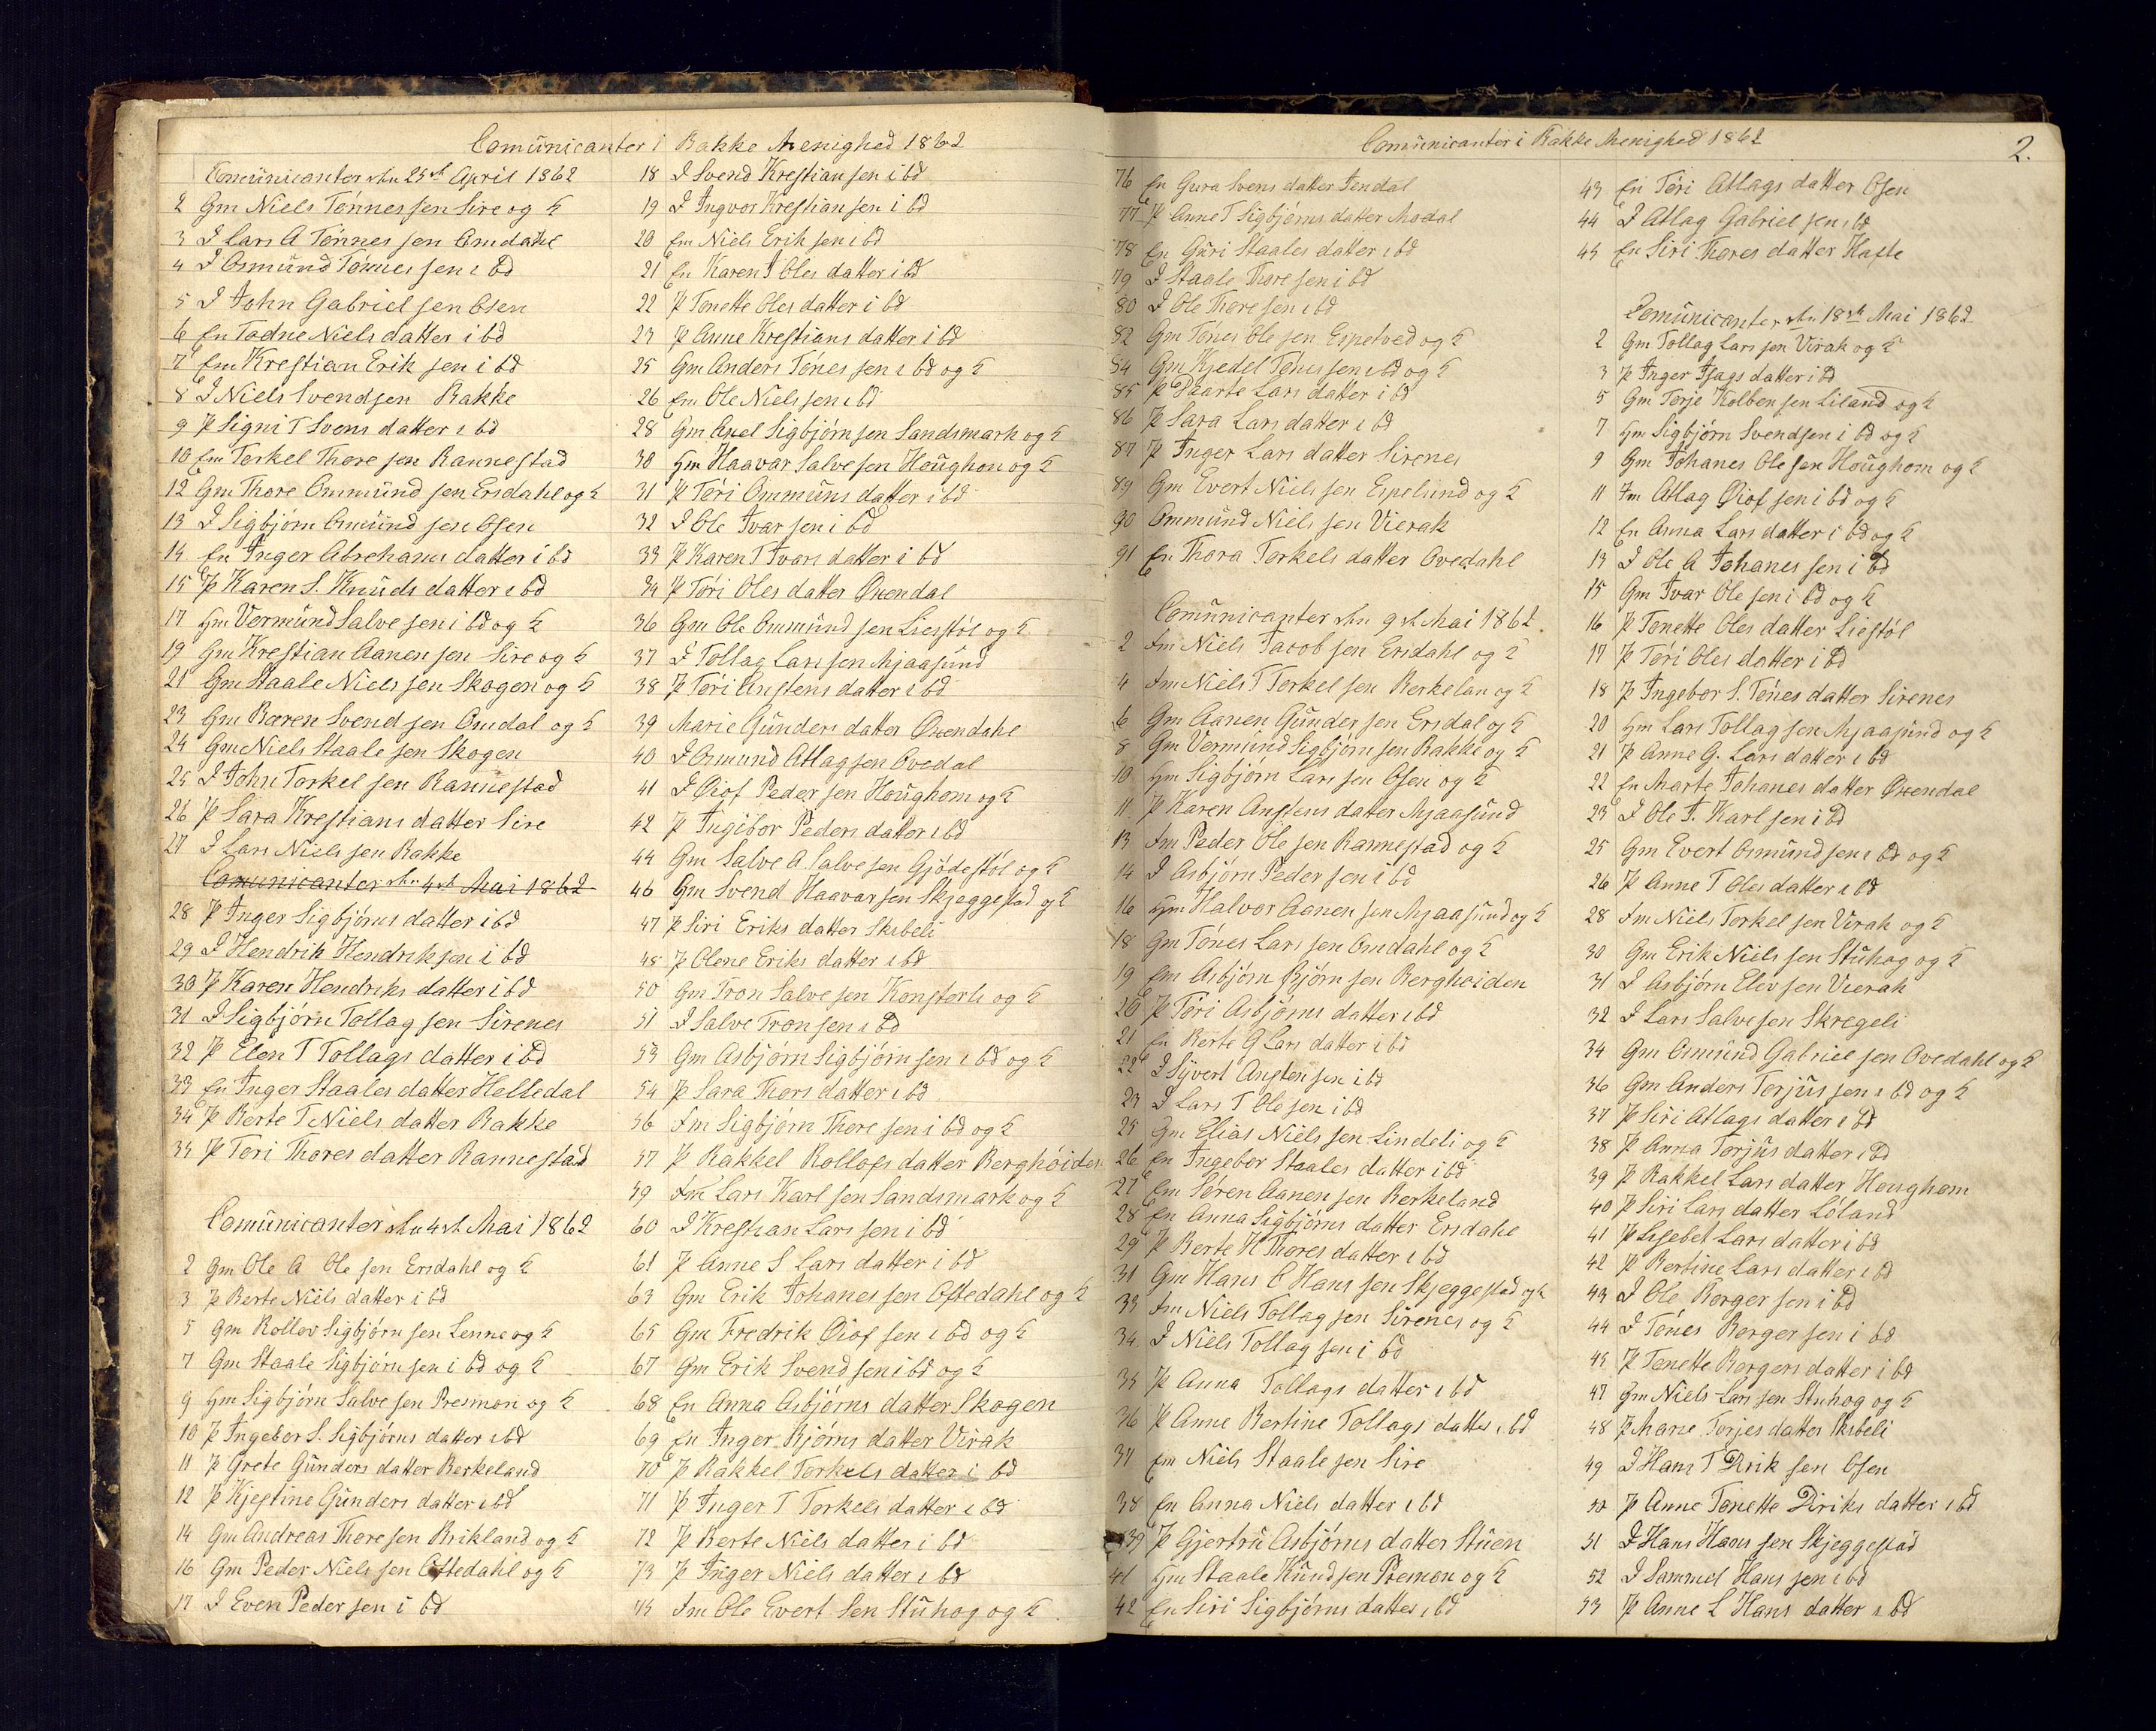 Comünicanter i Bakke Menighed 1862
Comünicanter den 25de April 1862
2 Gm Niels Tønnes sen Sire og H
3 J Lars A Tønnes sen Omdahl
4 J Osmünd Tønnes sen i bd
5 J John Gabriel sen Osen
6 En Todne Niels datter i bd
7 Em Krestian Erik sen i bd
8 J Niels Svendsen Bakke
9 P Signi T Svens datter i bd
10 Em Torkel Thore sen Rannestad
12 Gm Thore Ommünd sen Ersdahl og H
13 J Sigbjørn Omünd sen Osen
14 En Inger Abrehams datter i bd
15 P Karen S. Knuds datter i bd
17 Gm Vermünd Salve sen i bd og H
19 Gm Krestian Aanen sen Sire og H
21 Gm Staale Niels sen Skogen og H
23 Gm Baren Svend sen Omdal og H
24 Gm Niels Staale sen Skogen
25 J John Torkel sen Rannestad
26 P Sara Krestians datter Sire
27 J Lars Niels sen Bakke
Comunicanter den 4de Mai 1862
28 P Inger Sigbjørns datter i bd
29 J Hendrik Hendrik sen i bd
30 P Karen Hendriks datter i bd
31 J Sigbjørn Tollag sen Sirenes
32 P Elen T Tollags datter i bd
33 En Inger Staales datter Helledal
34 P Berte T Niels datter Bakke
35 P Tori Thores datter Rannestad
Comünicanter den 4de Mai 1862
2 Gm Ole A Ole sen Ersdahl og H
3 P Berte Niels datter i bd
5 Gm Rollov Sigbjørn sen Lenne og H
7 Gm Staale Sigbjørn sen i bd og H
9 Gm Sigbjørn Salve sen Presmon og H
10 P Ingebor S. Sigbjørns datter i bd
11 P Grete Günders datter Berkeland
12 P Kjestine Günders datter i bd
14 Gm Andreas Thore sen Brikland og H
16 Gm Peder Niels sen Oftedahl og H
17 J Even Peder sen i bd
18 J Svend Krestian sen i bd
19 J Ingvor Krestian sen i bd
20 Em Niels Erik sen i bd
21 En Karen T Oles datter i bd
22 P Tonette Oles datter i bd
23 P Anne Krestians datter i bd
25 Gm Anders Tønes sen i bd og H
26 Em Ole Niels sen i bd
28 Gm Axel Sigbjørn sen Sandsmark og H
30 Gm Haavar Salve sen Houghom og H
31 P Tøri Ommüns datter i bd
32 J Ole Ivar sen i bd
33 P Karen T Ivars datter i bd
34 P Tøri Oles datter Øxendal
36 Gm Ole Ommünd sen Liestøl og H
37 J Tollag Lars sen Mjaasünd
38 P Tøri Anstens datter i bd
39 Marie Günders datter Øxendahl
40 J Osmund Atlag sen Ovedal
41 J Øiof Peder sen Houghom og H
42 P Ingibor Peders datter i bd
44 Gm Salve A. Salve sen Gjødestøl og H
46 Gm Svend Haavar sen Skjeggestad og H
47 P Siri Eriks datter Skibeli
48 P Olene Eriks datter i bd
50 Gm Tron Salve sen Konsterli og H
51 J Salve Tron sen i bd
53 Gm Asbjørn Sigbjørn sen i bd og H
54 P Sara Thors datter i bd
56 Fm Sigbjørn Thore sen i bd og H
57 P Rakkel Rollofs datter Berghøiden
59 Fm Lars Karl sen Sandsmark og H
60 J Krestian Lars sen i bd
61 P Anne S Lars datter i bd
63 Gm Erik Johanes sen Oftedahl og H
65 Gm Fredrik Øiof sen i bd og H
67 Gm Erik Svend sen i bd og H
68 En Anna Asbjørns datter Skogen
69 En Inger Bjørns datter Virak
70 P Rakkel Torkels datter i bd
71 P Inger T Torkels datter i bd
72 P Berte Niels datter i bd
73 P Inger Niels datter i bd
75 Fm Ole Evert Sen Stuhog og H
Comünicanter i Bakke Menighed 1862
2.
76 En Gura Svens datter Jendal
77 P Anne T Sigbjørns datter Modal
78 En Güri Staales datter i bd
79 J Staale Thore sen i bd
80 J Ole Thore sen i bd
82 Gm Tønes Ole sen Espetved og H
84 Gm Kjedel Tønes sen i bd og H
85 P Marte Lars datter i bd
86 P Sara Lars datter i bd
87 P Inger Lars datter Sirenes
89 Gm Evert Niels sen Espelund og H
90 Ommünd Niels sen Vierak
91 En Thora Torkels datter Ovedahl
Comünicanter den 9de Mai 1862
2 Fm Niels Jacob sen Ersdahl og H
4 Fm Niels T Torkel sen Berkelan og H
6 Gm Aanen Günder sen Ersdal og H
8 Gm Vermünd Sigbjørn sen Bakke og H
10 Gm Sigbjørn Lars sen Osen og H
11 P Karen Anstens datter Mjaasünd
13 Fm Peder Ole sen Rannestad og H
14 J Asbjørn Peder sen i bd
16 Gm Halvor Aanen sen Mjaasünd og H
18 Gm Tønes Lars sen Omdahl og H
19 Em Asbjørn Bjørn sen Bergheiden
20 P Tøri Asbjørns datter i bd
21 En Berte G Lars datter i bd
22 J Sÿvert Ansten sen i bd
23 J Lars T Ole sen i bd
25 Gm Elias Niels sen Lindeli og H
26 En Ingebor Staales datter i bd
27 Em Søren Aanen sen Berkeland
28 En Anna Sigbjørns datter Ersdahl
29 P Berte H Thores datter i bd
31 Gm Hans C Hans sen Skjeggestad og H
33 Fm Niels Tollag sen Sirenes og H
34 J Niels Tollag sen i bd
35 P Anna Tollags datter i bd
36 P Anne Bertine Tollags datter i bd
37 Em Niels Staale sen Sire
38 En Anna Niels datter i bd
39 P Gjertru Asbjørns datter Stüen
41 Gm Staale Knüd sen Presmon og H
42 En Siri Sigbjørns datter i bd
43 En Tøri Atlags datter Osen
44 J Atlag Gabriel sen i bd
45 En Siri Thores datter Hafte
Comünicanter den 18de Mai 1862
2 Gm Tollag Lars sen Virak og H
3 P Inger Isags datter i bd
5 Gm Terje Kolben sen Liland og H
7 Gm Sigbjørn Svendsen i bd og H
9 Gm Johanes Ole sen Houghom og H
11 Fm Atlag Øiof sen i bd og H
12 En Anna Lars datter i bd og H
13 J Ole A Johanes sen i bd
15 Gm Ivar Ole sen i bd og H
16 P Tonette Oles datter Liestøl
17 P Tøri Oles datter i bd
18 P Ingebor S. Tønes datter Sirenes
20 Gm Lars Tollag sen Mjaasünd og H
21 P Anne G. Lars datter i bd
22 En Marte Johanes datter Øxendal
23 J Ole T. Karl sen i bd
25 Gm Evert Osmünd sen i bd og H
26 P Anne T Oles datter i bd
28 Fm Niels Torkel sen Virak og H
30 Gm Erik Niels sen Stühog og H
31 J Asbjørn Elev sen Vierak
32 J Lars Salve sen Skregeli
34 Gm Osmünd Gabriel sen Ovedahl og H
36 Gm Anders Terjüs sen i bd og H
37 P Siri Atlags datter i bd
38 P Anna Torjüs datter i bd
39 P Rakkel Lars datter Houghom
40 P Siri Lars datter Løland
41 P Lisebet Lars datter i bd
42 P Bertine Lars datter i bd
43 J Ole Berger sen i bd
44 J Tønes Berger sen i bd
45 P Tonette Bergers datter i bd
47 Gm Niels Lars sen Stuhog og H
48 P Marie Torjes datter Skibeli
49 J Hans T Dirik sen Osen
50 P Anne Tonette Diriks datter i bd
51 J Hans Hans sen Skjeggestad
52 J Sammel Hans sen i bd
53 P Anne L Hans datter i bd